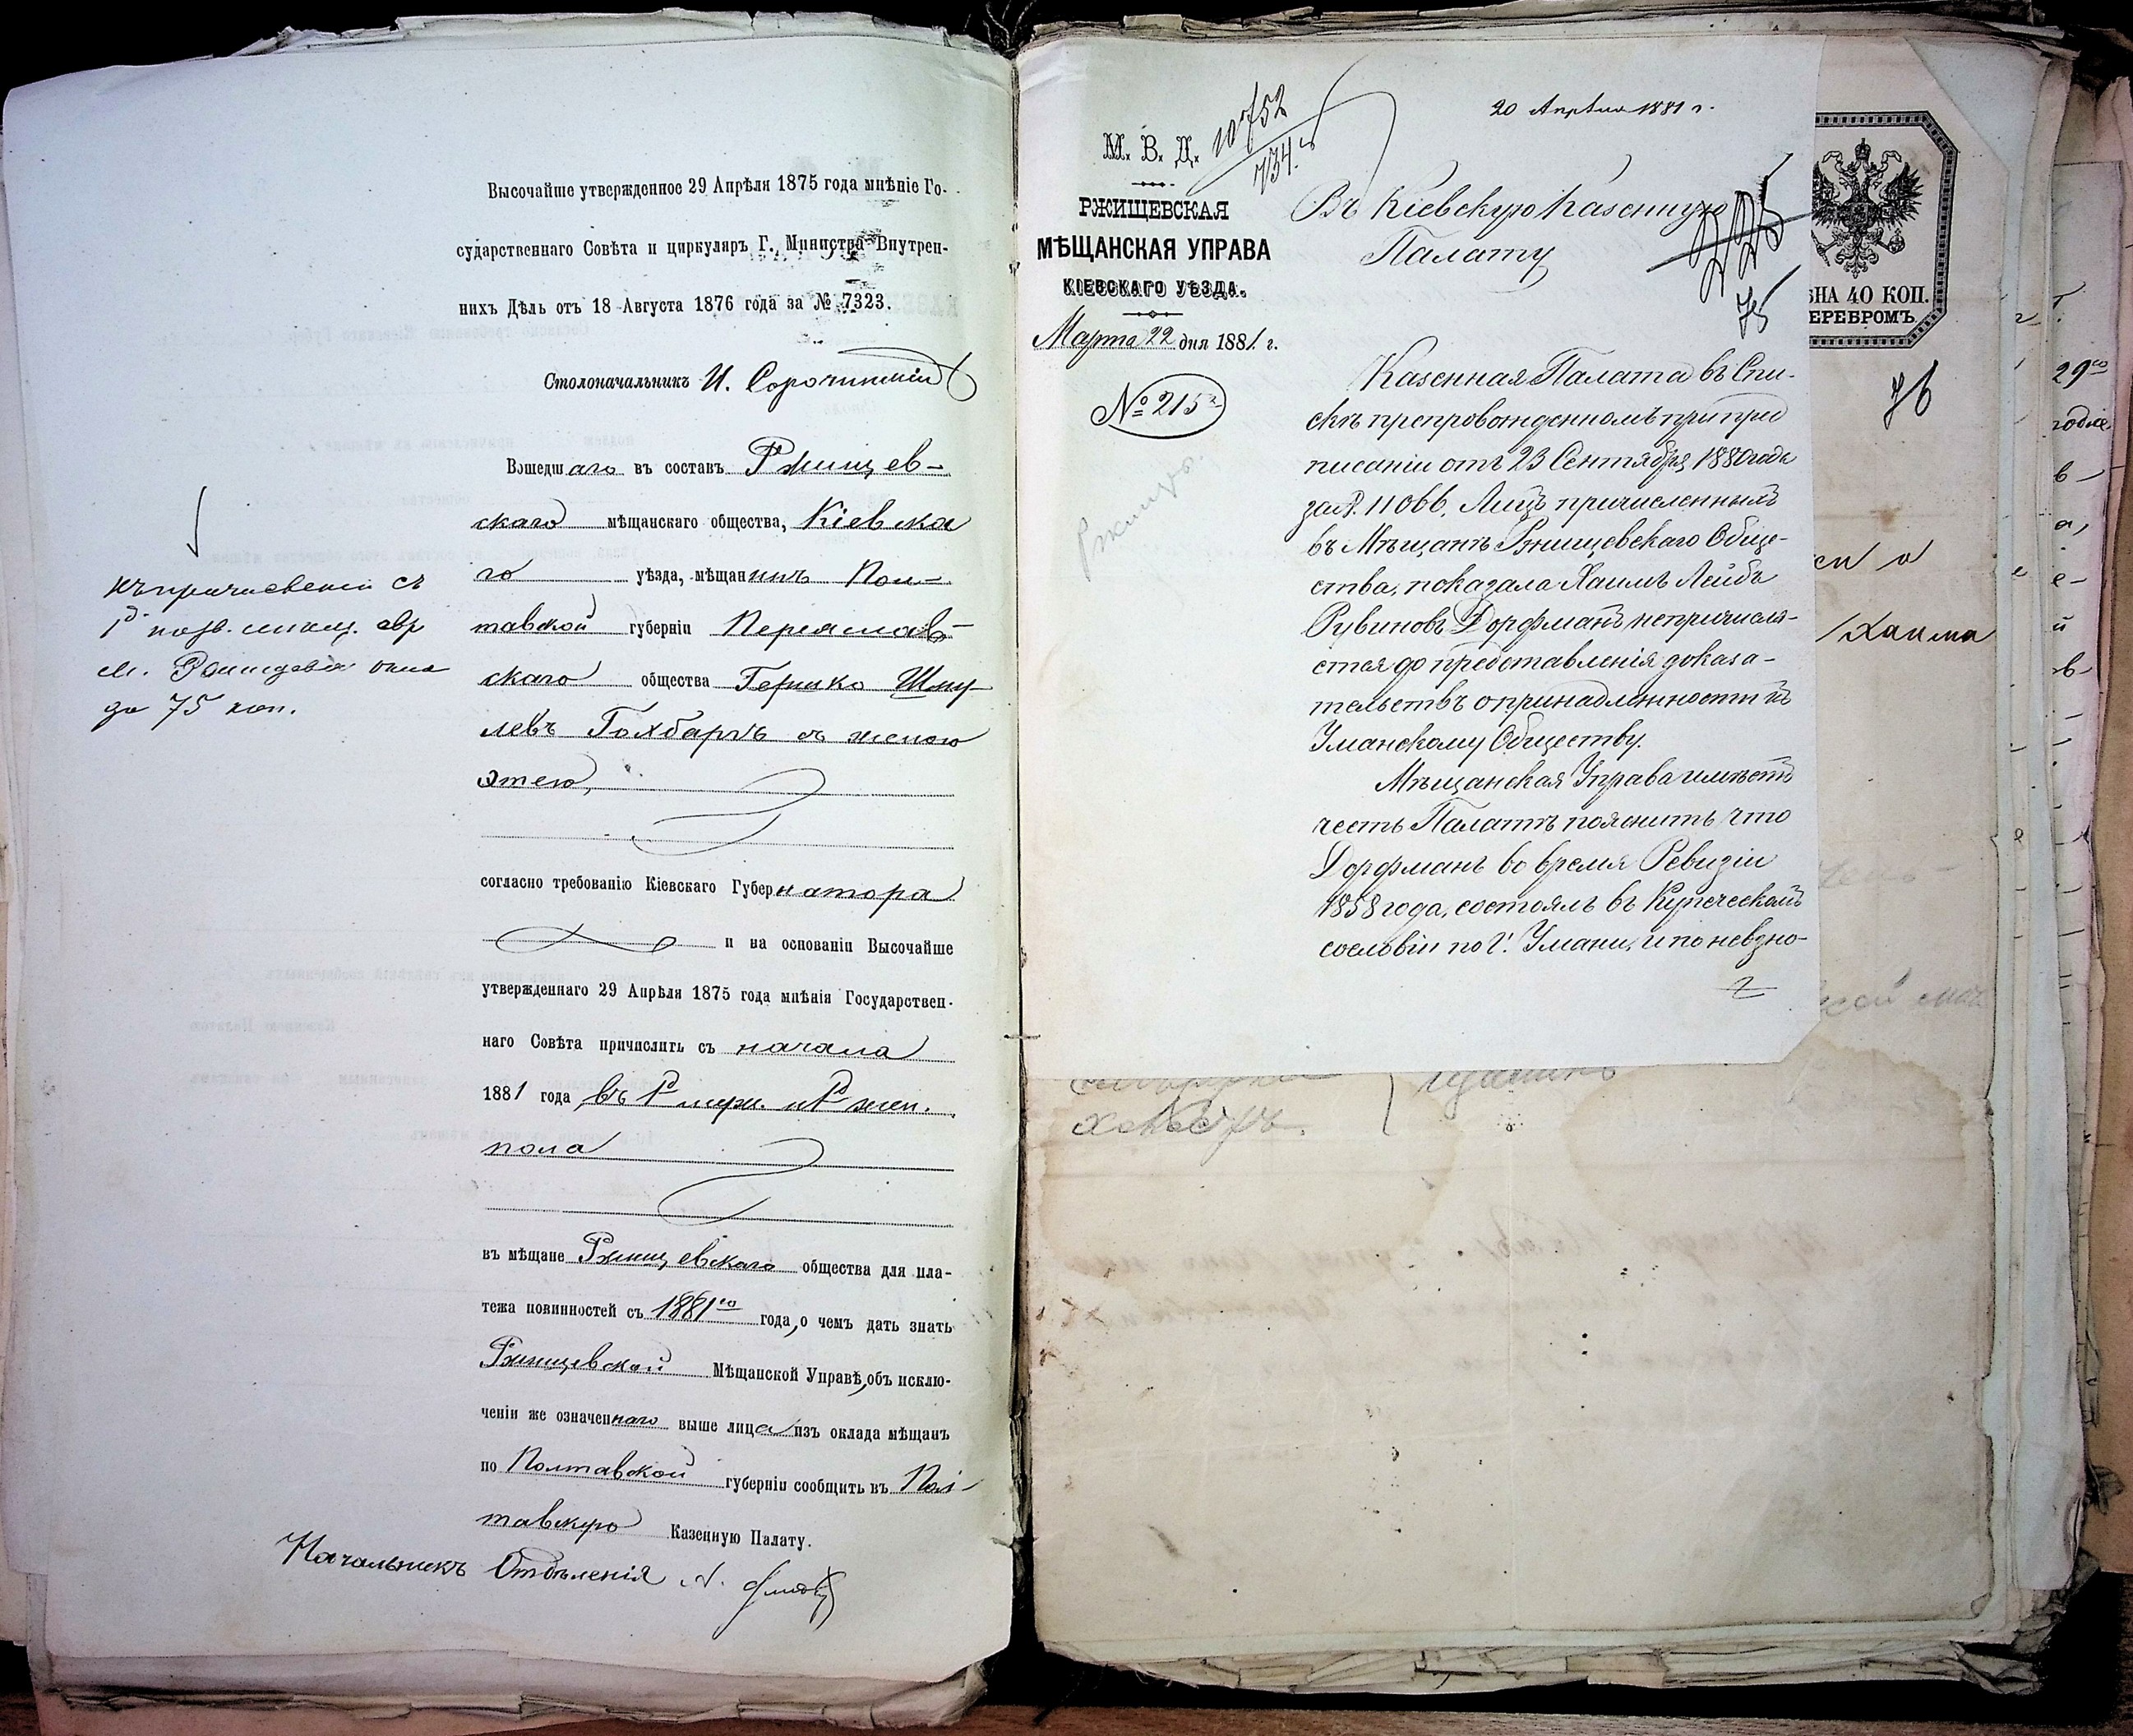 Высочайше утвержденное 29 Апрѣля 1875 года мнѣніе Го-
сударственнаго Совѣта и циркуляръ Г., Министра Внутрен-
нихъ Дѣлъ отъ 18 Августа 1876 года за № 7323.
Столоначальникъ И. Сорочинскій
Вошедшаго въ составъ Ржищев-
скаго мѣщанскаго общества, Кіевска
го уѣзда, мѣщанинъ Пол-
тавской губерніи Переяслав-
скаго общества Гершко Шму-
левъ Гохбаргъ съ женою
Этею,
согласно требованію Кіевскаго Губернатора
и на основаніи Высочайше
утвержденнаго 29 Апрѣля 1875 года мнѣнія Государствен-
наго Совѣта причислить съ начала
1881 года въ 1 муж. и 1 жен.
пола
въ мѣщане Ржищевскаго общества для пла-
тежа повинностей съ 1881го года, о чемъ дать знать
Ржищевской Мѣщанской Управѣ, объ исклю-
ченіи же означеннаго выше лица изъ оклада мѣщанъ
по Полтавской губерніи сообщить въ Пол-
тавскую Казенную Палату.
Начальникъ Отдѣленія
къ причисленію съ
до 75 коп.
20 Апрѣля 1881 г.
10752
734
М. В. Д.
РЖИЩЕВСКАЯ
МѢЩАНСКАЯ УПРАВА
КІЕВСКАГО УѢЗДА.
Марта 22 дня 1881 г.
№ 215
Ржищевъ.
Въ Кіевскую Казенную
Палату
75
Казенная Палата въ Спи-
скѣ препровожденномъ при пред
писаніи отъ 23 Сентября 1880 года
за №. 11066, Лицъ причисленныхъ
въ Мѣщанѣ Ржищевскаго Обще-
ства, показала Хаимъ Лейбъ
Рувиновъ Дорфманъ непричисля-
ется до представленія доказа-
тельствъ о принадлежности къ
Уманскому Обществу.
Мѣщанская Управа имѣетъ
честь Палатѣ пояснить что
Дорфманъ во время Ревизіи
1858 года, состоялъ въ Купеческомъ
сословіи по Г. Умани, и по невзно-
ЦѢНА 40 КОП.
СЕРЕБРОМЪ.
76
Хаима